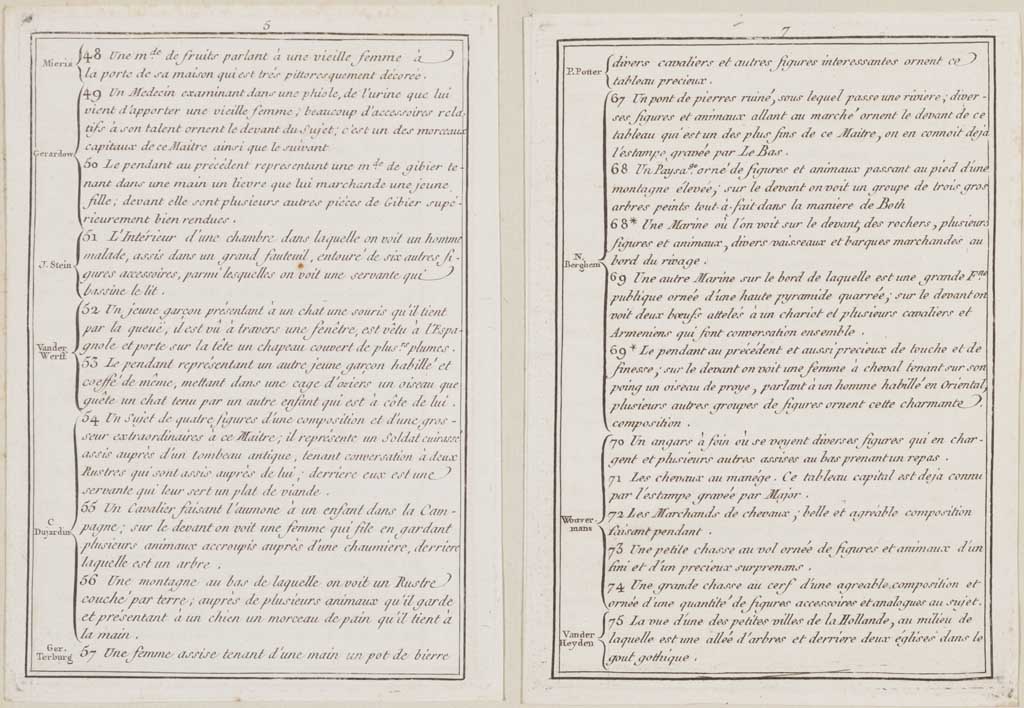 5
Mieris
48 Une m.de de fruits parlant à une vieille femme à
la porte de sa maison qui est trés pittoresquement décorée.
Gerardow
49 Un Medecin examinant dans une phiole, de l'urine que lui
vient d'apporter une vieille femme; beaucoup d'accessoires rela-
tifs à son talent ornent le devant du Sujet; c'est un des morceaux
capitaux de ce Maitre ainsi que le suivant
50 Le pendant au précédent representant une m.de de gibier te-
nant dans une main un lievre que lui marchande une jeune
fille; devant elle sont plusieurs autres piéces de Gibier supé-
rieurement bien rendues.
J. Stein
51 L'Intérieur d'une chambre dans laquelle on voit un homme
malade, assis dans un grand fauteuil, entouré de six autres fi-
gures accessoires, parmi lesquelles on voit une servante qui
bassine le lit.
Vander
Werff
52 Un jeune garçon présentant à un chat une souris qu'il tient
par la queue, il est vû à travers une fenêtre, est vêtu à l'Espa-
gnole et porte sur la tête un chapeau couvert de plus.rs plumes.
53 Le pendant représentant un autre jeune garçon habillé et
coeffé de même, mettant dans une cage d'oziers un oiseau que
guête un chat tenu par un autre enfant qui est à côte de lui.
C
Dujardin
54 Un Sujet de quatre figures d'une composition et d'une gros-
seur extraordinaires à ce Maitre; il représente un Soldat cuirassé
assis auprès d'un tombeau antique, tenant conversation à deux
Rustres qui sont assis auprés de lui; derriere eux est une
servante qui leur sert un plat de viande.
55 Un Cavalier faisant l'aumone à un enfant dans la Cam-
pagne; sur le devant on voit une femme qui file en gardant
plusieurs animaux accroupis auprès d'une chaumiere, derriere
laquelle est un arbre.
56 Une montagne au bas de laquelle on voit un Rustre
couché par terre; auprès de plusieurs animaux qu'il garde
et présentant à un chien un morceau de pain qu'il tient à
la main.
Ger.
Terburg
57 Une femme assise tenant d'une main un pot de bierre
7
P. Potter
divers cavaliers et autres figures interessantes ornent ce
tableau precieux.
N.
Berghem
67 Un pont de pierres ruiné, sous lequel passe une riviere; diver-
ses figures et animaux allant au marché ornent le devant de ce
tableau qui est un des plus fins de ce Maitre, on en connoit deja
l'estampe gravée par Le Bas.
68 Un Paysa.ge orné de figures et animaux passant au pied d'une
montagne élevée; sur le devant on voit un groupe de trois gros
arbres peints tout-à-fait dans la maniere de Both
68* Une Marine où l'on voit sur le devant, des rochers, plusieurs
figures et animaux, divers vaisseaux et barques marchandes au
bord du rivage.
69 Une autre Marine sur le bord de laquelle est une grande F.ne
publique ornée d'une haute pyramide quarrée; sur le devant on
voit deux bœufs attelés à un chariot et plusieurs cavaliers et
Armeniens qui font conversation ensemble.
69* Le pendant au précédent et aussi precieux de touche et de
finesse; sur le devant on voit une femme à cheval tenant sur son
poing un oiseau de proye, parlant à un homme habillé en Oriental,
plusieurs autres groupes de figures ornent cette charmante
composition.
Wouver-
mans
70 Un angars à foin où se voyent diverses figures qui en char-
gent et plusieurs autres assises au bas prenant un repas.
71 Les chevaux au manége. Ce tableau capital est deja connu
par l'estampe gravée par Major.
72 Les Marchands de chevaux; belle et agreable composition
faisant pendant.
73 Une petite chasse au vol ornée de figures et animaux d'un
fini et d'un precieux surprenans.
74 Une grande chasse au cerf d'une agreable composition et
ornée d'une quantité de figures accessoires et analogues au sujet.
Vander
Heyden
75 La vue d'une des petites villes de la Hollande, au milieu de
laquelle est une allée d'arbres et derriere deux églises dans le
gout gothique.